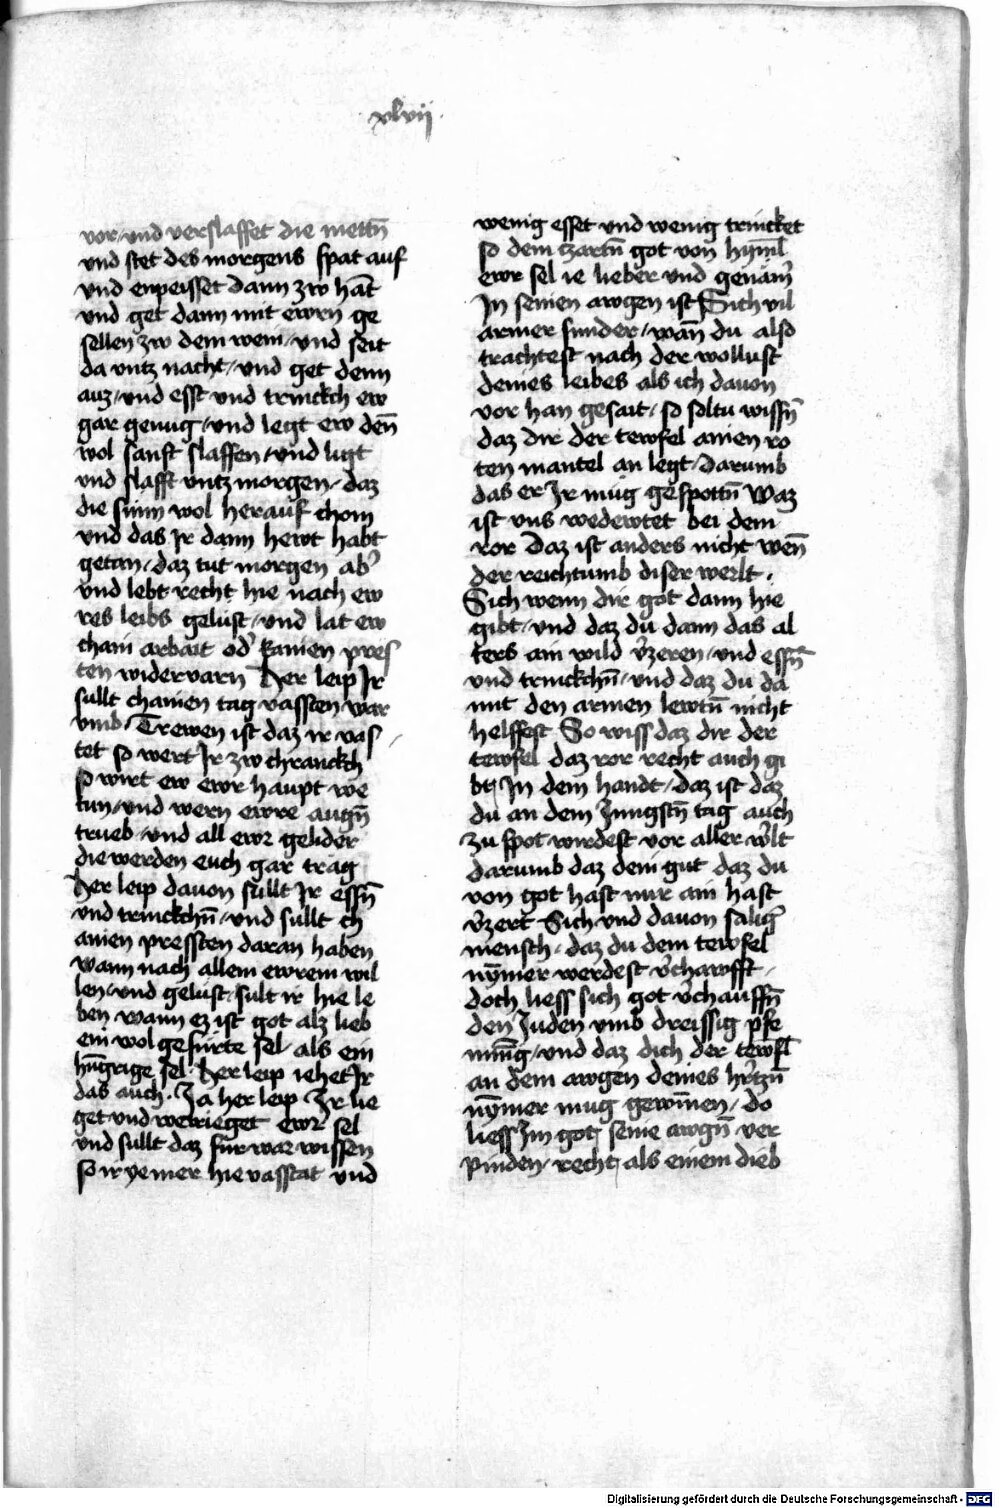 xlvii
vor und verslaffet die mettn̄
und stet des morgens spat auf
und enpeisset dann zw hāt
und get dann mit ewrn ge
sellen zw dem wein / und seit
da untz nacht / und get denn
auz / und esst und trinckch ew
gar genug / und legt ew den̄
wol sanft slaffen / und ligt
und slafft untz morgen / daz
die sunn wol herauf chom
und das Ir dann hewt habt
getan / daz tut morgen ab̓
und lebt recht hie nach ew
res leibs gelust / und lat ew
chain arbait od̓ kainen pres
ten widervarn Her leip Ir
sullt chainen tag vassten war
umb / Trewen ist daz ir vas
tet so wert Ir zw chranckch
so wirt ew ewr haupt we
tun / und wern ewre augn̄
trueb / und all ewr gelider
die werden euch gar träg
Her leip davon sullt Ir essn̄
und trinckchn̄ / und sullt ch
ainen pressten daran haben
wann nach allem ewrem wil
len / und gelust / sult ir hie le
ben wann ez ist got alz lieb
ein wol gefürte sel / als ein
hūgrige sel / Her leip iehet Ir
das auch . Ja her leip Ir lie
get und wetrieget ewr sel
und sullt daz fur war wissen
so ir yemer hie vasstat und
wenig esset und wenig trincket
so dem zartn̄ got von hym̄l
ewr sel ie lieber und genäm̓
In seinen awgen ist Sich vil
armer sunder / wan̄ du also
trachtest nach der wollust
deines leibes als ich davon
vor han gesait / so soltu wissn̄
daz dir der tewfel ainen ro
ten mantel an legt / darumb
das er Ir müg gespottn̄ Waz
ist uns wedewtet bei dem
ror Daz ist anders nicht wen̄
der reichtumb diser werlt .
Sich wenn dir got dann hie
gibt / und daz du dann das al
ters ain wild v̓zeren / und essn̄
und trinckchn̄ / und daz du da
mit den armen lewtn̄ nicht
helffest So wiss daz dir der
tewfel daz ror recht auch gi
bt In dem handt / daz ist daz
du an dem Jungstn̄ tag auch
zu spot wirdest vor aller w̓lt
darumb daz dein gut daz du
von got hast nur ain hast
v̓zert Sich und davon salig̓
mensch / daz du dem tewfel
nym̄er werdest v̓chawfft /
doch liess sich got v̓chauffn̄
den Juden umb dreissig pfe
nin̄g / und daz dich der tewfl
an dem awgen deines hr̓tzn̄
nym̄er mug gewin̄en / do
liess Im got seine awgn̄ ver
pinden / recht als einem dieb
Digitalisierung gefördert durch die Deutsche Forschungsgemeinschaft - DFG